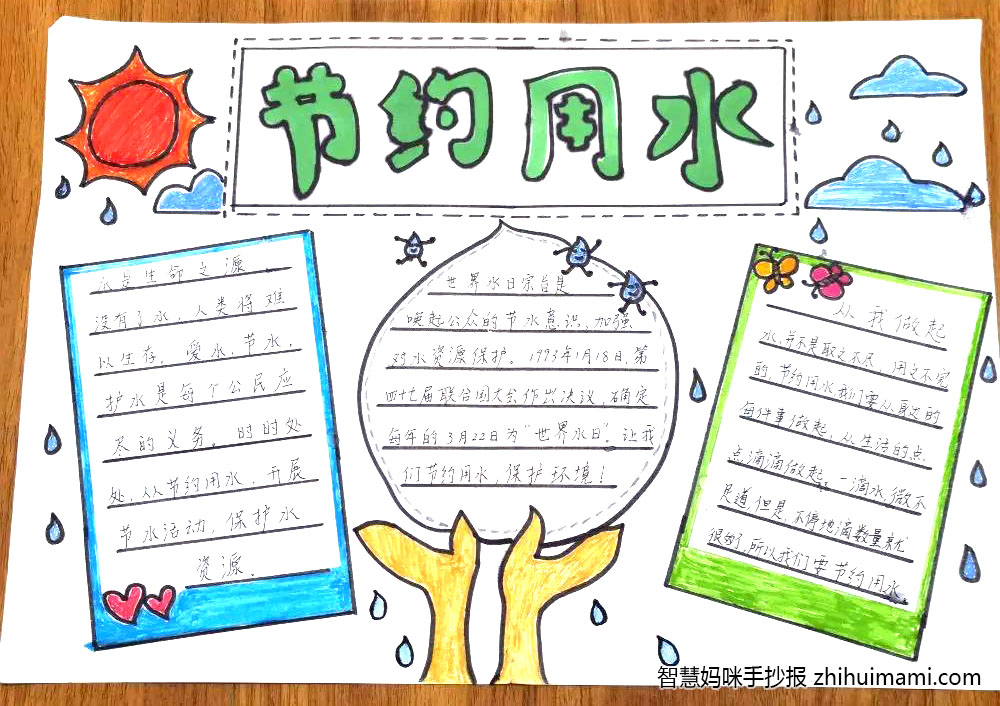 节约用水
水是生命之源
没有了水，人类将难
以生存。爱水，节水，
护水是每个公民应
尽的义务。时时处
处，从节约用水，开展
节水活动，保护水
资源。
世界水日宗旨是
唤起公众的节水意识，加强
对水资源保护。1993年1月18日，第
四十七届联合国大会作出决议，确定
每年的3月22日为“世界水日”。让我
们节约用水，保护环境！
从我做起
水，并不是取之不尽，用之不完
的，节约用水我们要从身边的
每件事做起，从生活的点
点滴滴做起。一滴水，微不
足道，但是，不停地滴数量就
很多了，所以我们要节约用水。
智慧妈咪手抄报 zhihuimami.com